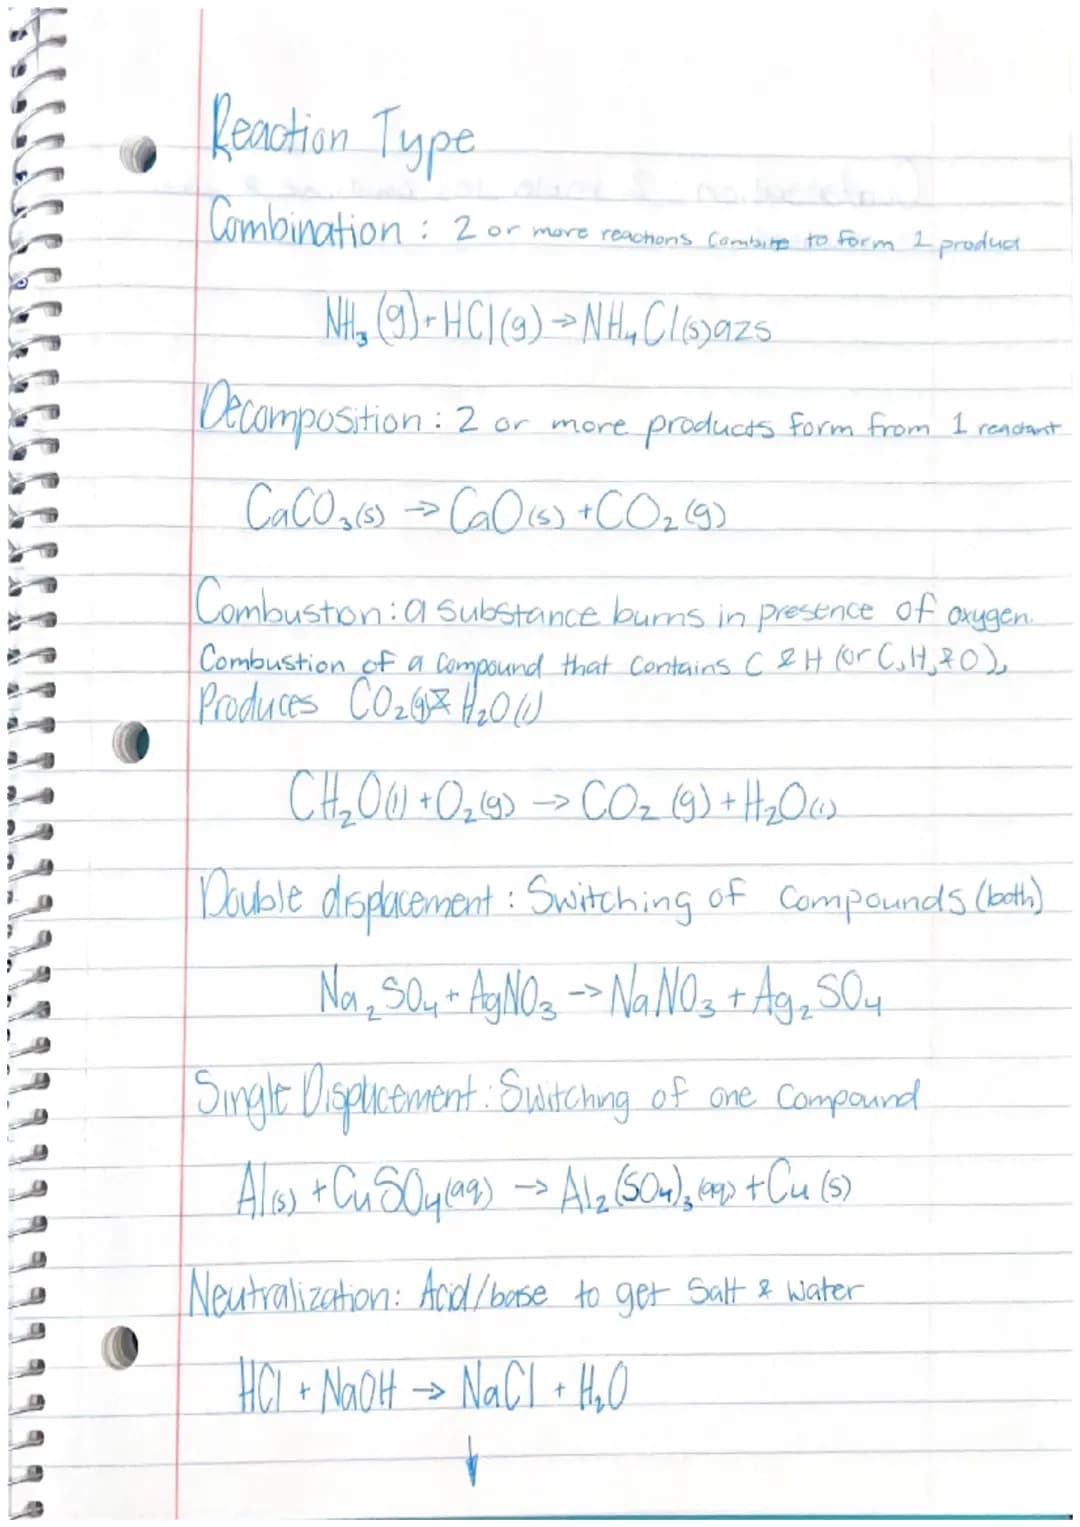 Reaction Type
Combination : 2 or more reactions combine to form 1 product
NH₃ (g) + HCl (g) → NH₄Cl(s)azs
Decomposition : 2 or more products form from 1 reactant
CaCO₃(s) → CaO(s) + CO₂ (g)
Combustion : a substance burns in presence of oxygen.
Combustion of a compound that contains C & H (or C, H, & O),
Produces CO₂(g) & H₂O(l)
CH₂O(l) + O₂(g) → CO₂ (g) + H₂O(l)
Double displacement : Switching of Compounds (both)
Na₂SO₄ + AgNO₃ → NaNO₃ + Ag₂SO₄
Single Displacement : Switching of one Compound
Al(s) + CuSO₄(aq) → Al₂(SO₄)₃(aq) + Cu (s)
Neutralization : Acid/base to get Salt & water
HCl + NaOH → NaCl + H₂O
↓